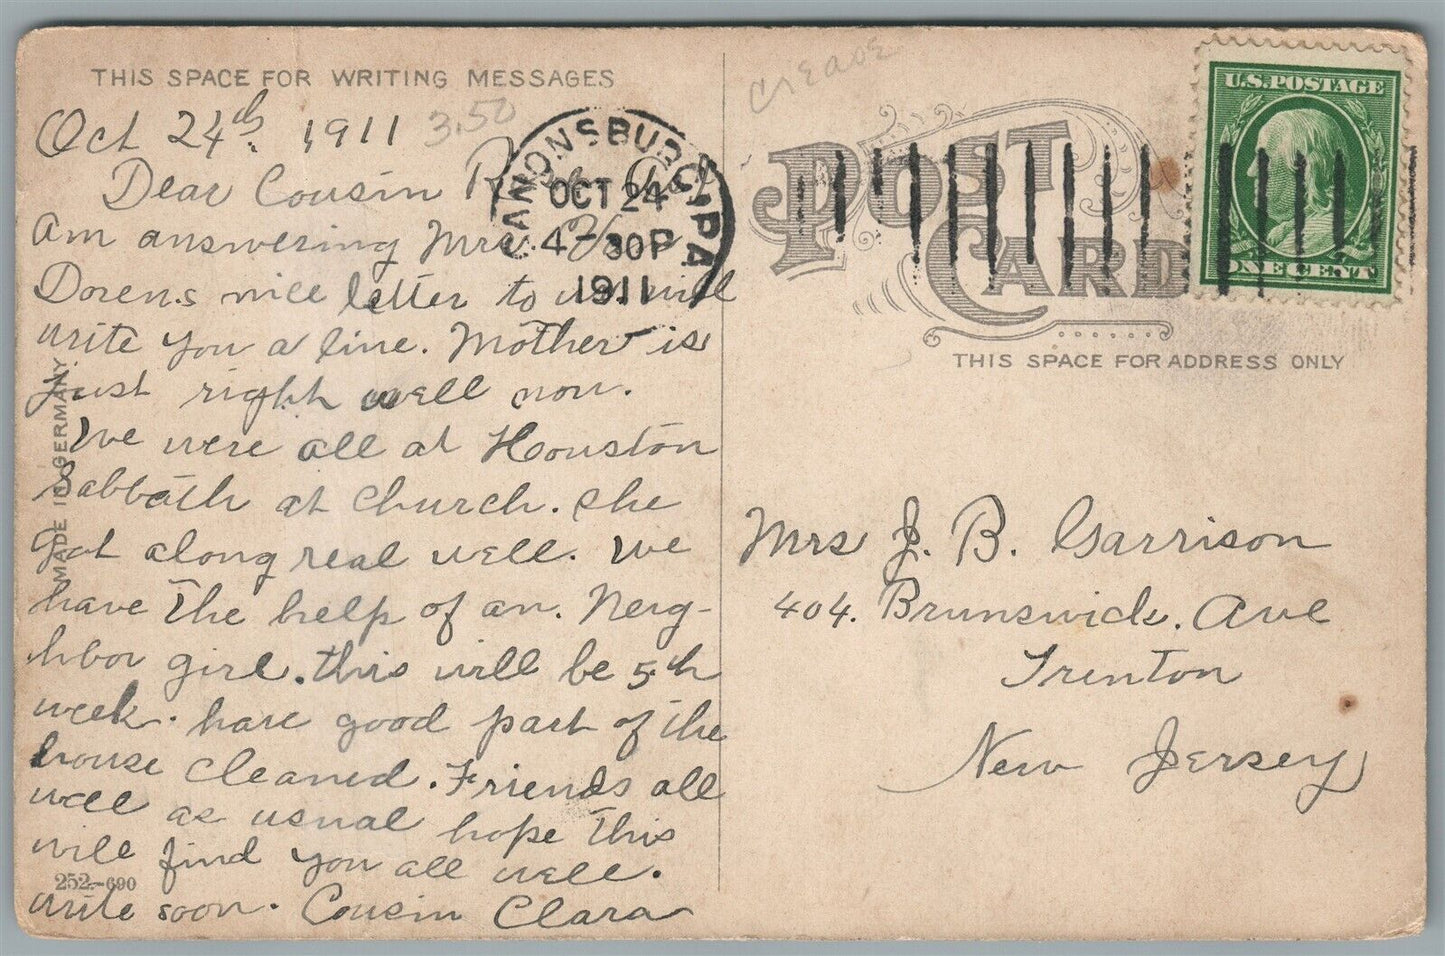 THIS SPACE FOR WRITING MESSAGES
Oct 24th, 1911
3.50
Dear Cousin
am answering Mrs. Van
Doren.s nice letter to
write you a line. Mother is
just right well now.
We were all at Houston
Sabbath at church. She
got along real well. We
have the help of an. Neig-
hbor girl. this will be 5th
week. have good part of the
house cleaned. Friends all
well as usual hope this
will find you all well.
write soon. Cousin Clara
MADE IN GERMANY
252.-690
CANONSBURG, PA
OCT 24
4-30P
1911
crease
POST
CARD
THIS SPACE FOR ADDRESS ONLY
U.S. POSTAGE
ONE CENT
Mrs J. B. Garrison
404. Brunswick. Ave
Trenton
New Jersey